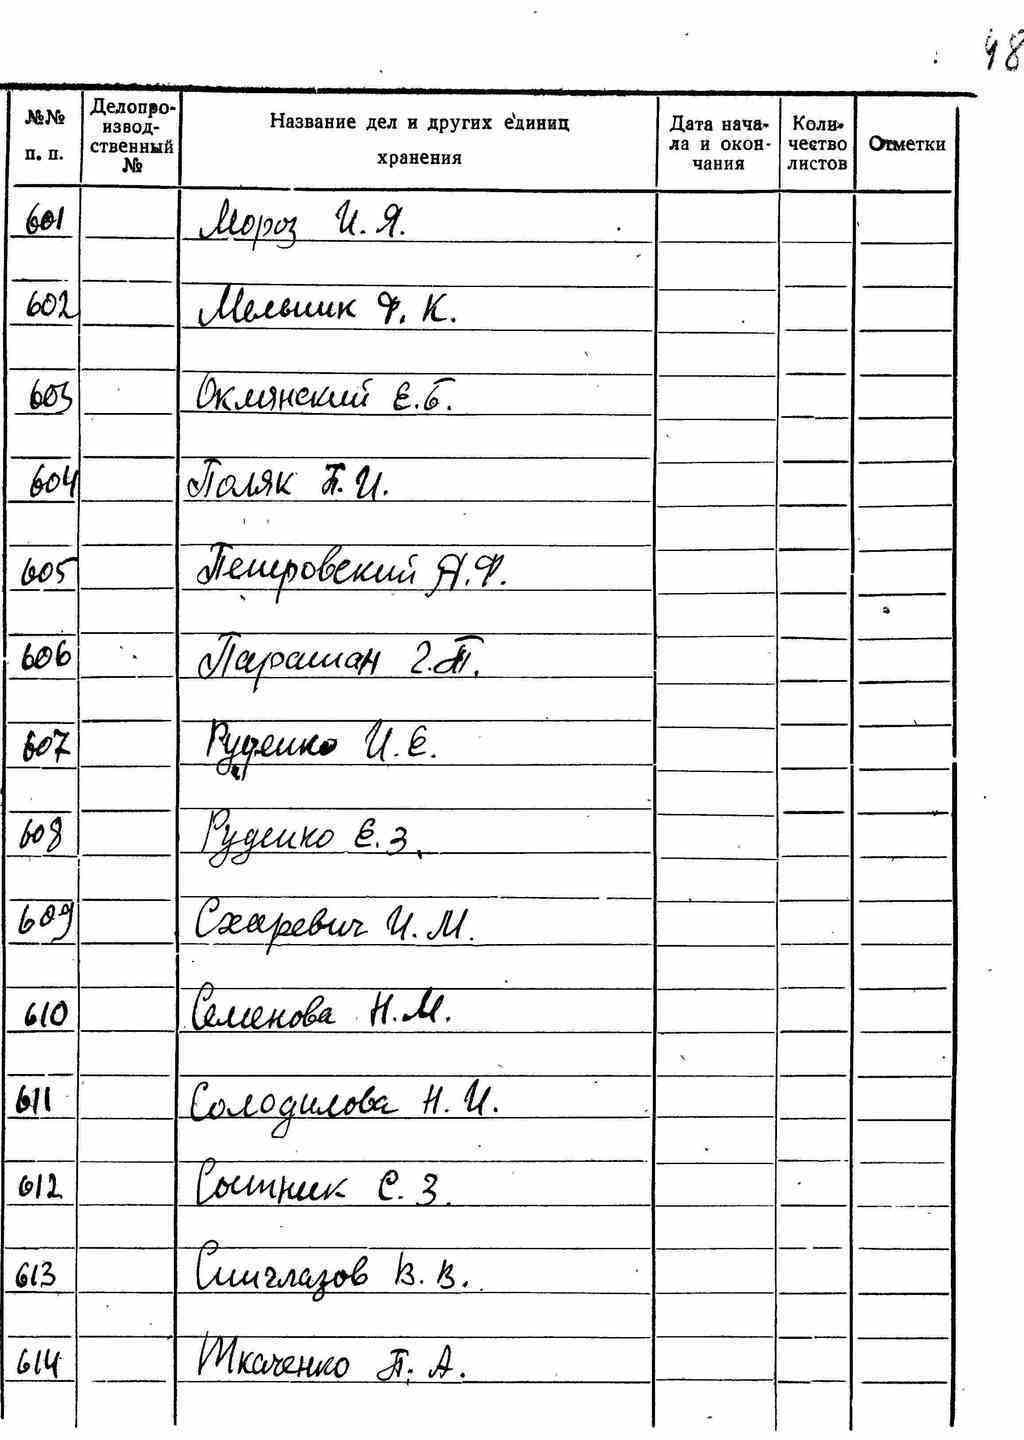 48
№№ п. п.
Делопро-
извод-
ственный
№
Название дел и других единиц
хранения
Дата нача-
ла и окон-
чания
Коли-
чество
листов
Отметки
601 Мороз И. Я.
602 Мельник Ф. К.
603 Оклянский Е.Б.
604 Поляк П. И.
605 Петровский А.Ф.
606 Парашан Г.П.
607 Руденко И. Е.
608 Руденко Е. З.
609 Сахаревич И. М.
610 Семенова Н.М.
611 Солодилова Н. И.
612 С. З.
613 Синглазов В. В.
614 Ткаченко П. А.